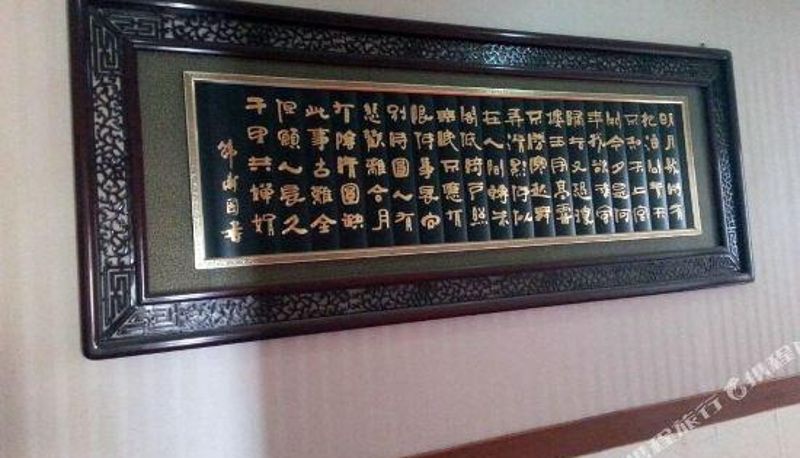 明月幾時有
把酒問青天
不知天上宮
闕今夕是何
年我欲乘風
歸去又恐瓊
樓玉宇高處
不勝寒起舞
弄清影何似
在人間轉朱
閣低綺戶照
無眠不應有
恨何事長向
別時圓人有
悲歡離合月
有陰晴圓缺
此事古難全
但願人長久
千里共嬋娟
携程旅行
携程